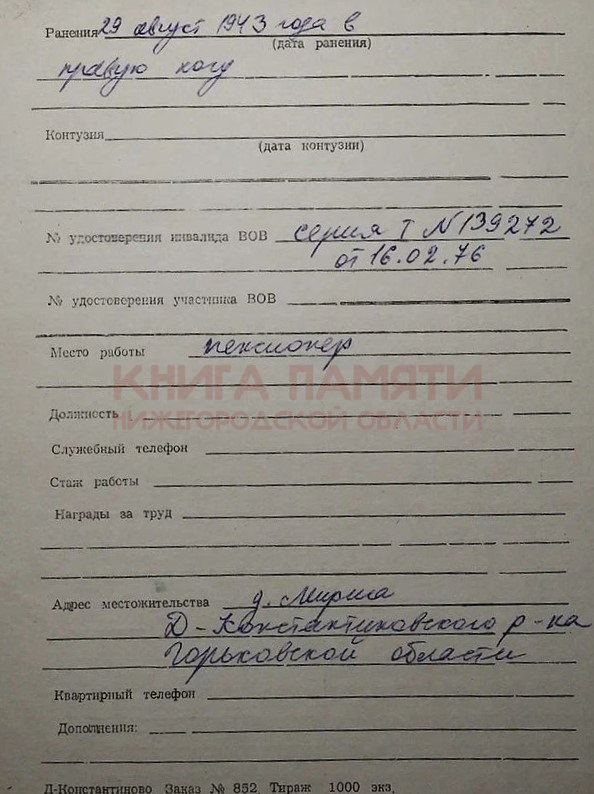 Ранения 29 август 1943 года в
(дата ранения)
правую ногу
Контузия
(дата контузии)
№ удостоверения инвалида ВОВ серия Т N 139272
от 16.02.76
№ удостоверения участника ВОВ
Место работы пенсионер
КНИГА ПАМЯТИ
Должность
НИЖЕГОРОДСКОЙ ОБЛАСТИ
Служебный телефон
Стаж работы
Награды за труд
Адрес местожительства д. Мириса
Д-Константиновского р-на
Горьковской области
Квартирный телефон
Дополнения:
Д-Константиново Заказ № 852 Тираж 1000 экз.